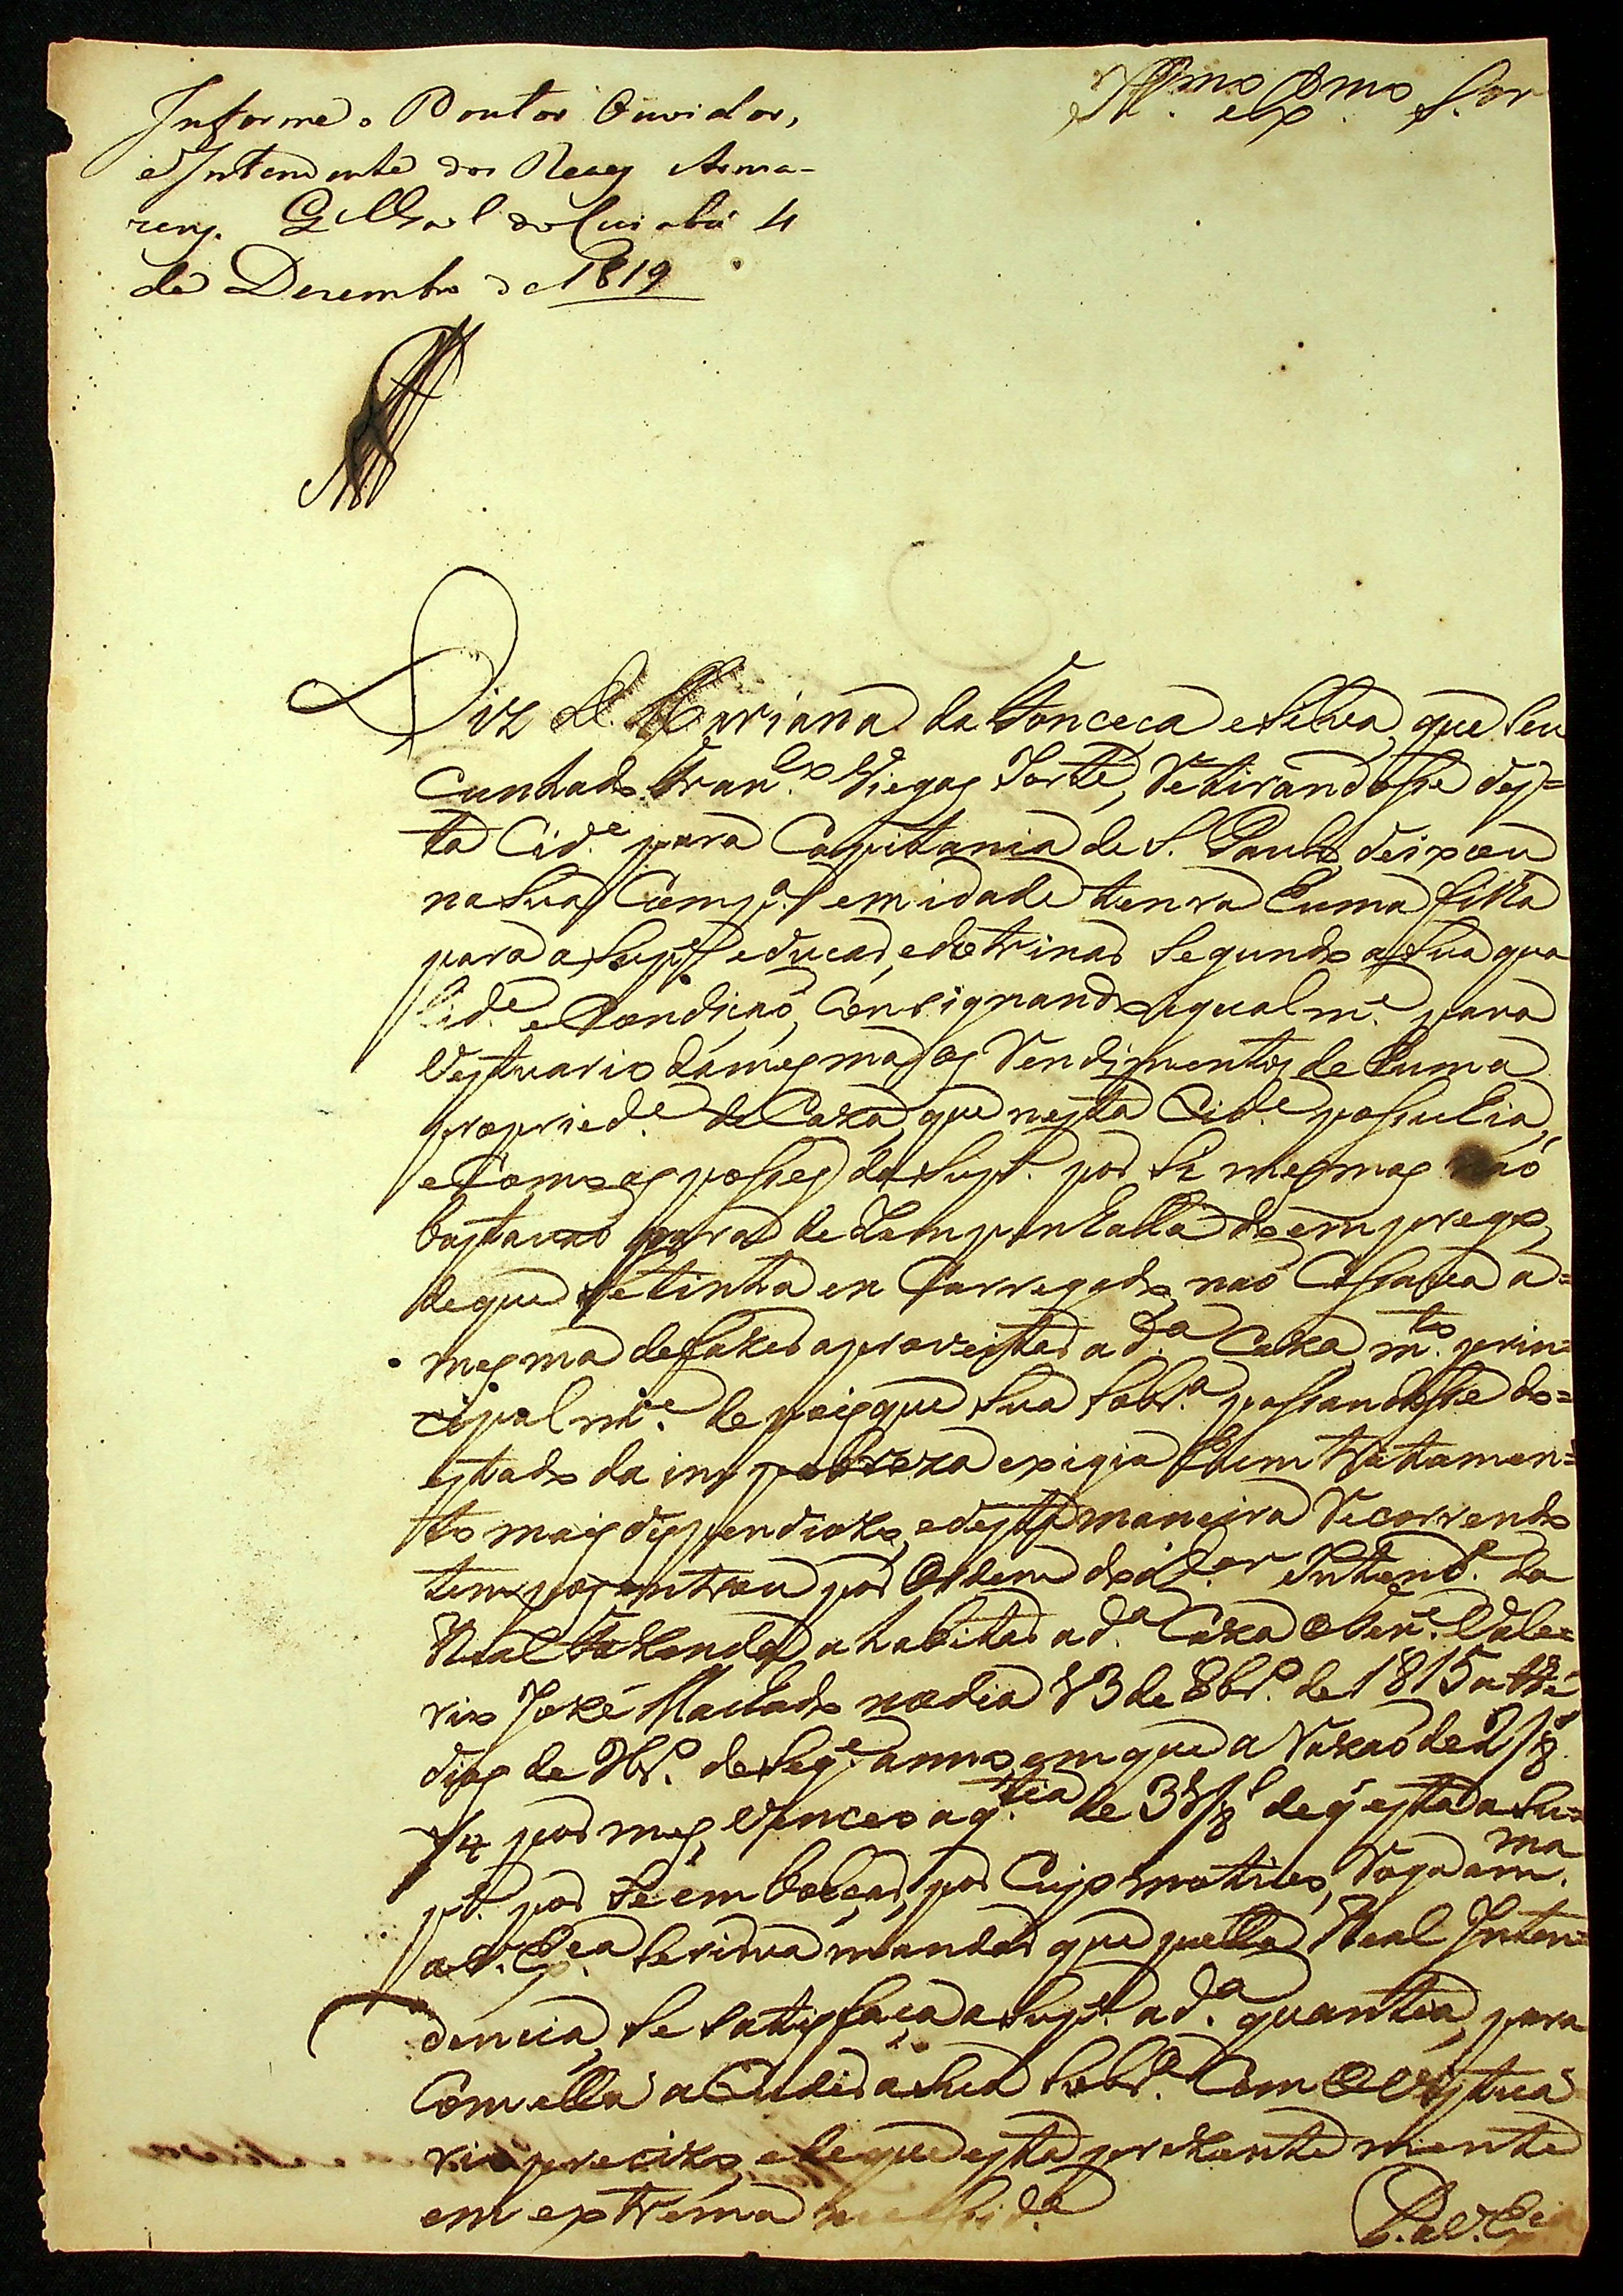 Informe o Doutor Ouvidor,
e Intendente dos Reaes Arma-
zens. Q.el G.al do Cuiabá 4
de Dezembro de 1819
Ill.mo e Ex.mo S.or
Diz D. Marianna da Fonceca e Silva, que seu
Cunhado Fran.co Viegas Forte, retirandosse des=
ta Cid.e para Capitania de S. Paulo, deixou
na sua Comp.a em idade tenra huma filha
para a Supp.e educar, e dotrinar segundo a sua qua
lid.e e Condição, Consignando igualm.e para
Vestuario da mesma os rendimentos de huma
propried.e de Caza, que nesta Cid.e possuhia,
e Como as posses da Sup.e por si mesmas não
bastavão para dezempenhalla do emprego
de que se tinha en Carregado, não Cessava a=
mesma de fazer aproveitar a d.a Caza, m.to prin=
cipalm.e depois que sua Sobr.a passandosse do=
estado da im exigia hum tratamen=
to mais dispendiozo, e desta maneira recorrendo
tempos entrou por Ordem do D.or Intend.e da
Real Fazenda a habitar a d.a Caza o Ten.e Vale=
rio Jozé Machado no dia 13 de 8br.o de 1815 athé
dias de de Seg.e anno, em que a razão de 2/8
1/4 por mes, venceo a q.tia de de q' está a Su=
p.e por se embolçar, por Cujo motivo, roga a m.ma
a V. Ex.cia se sirva mandar que pella Real Inten=
dencia, se satisfaça a Sup.e a d.a quantia, para
Com ella acudir a sua Sobr.a Com o Vestua
rio precizo, e de que está prezentemente
em extrema necessid.e
P. a V. Ex.cia